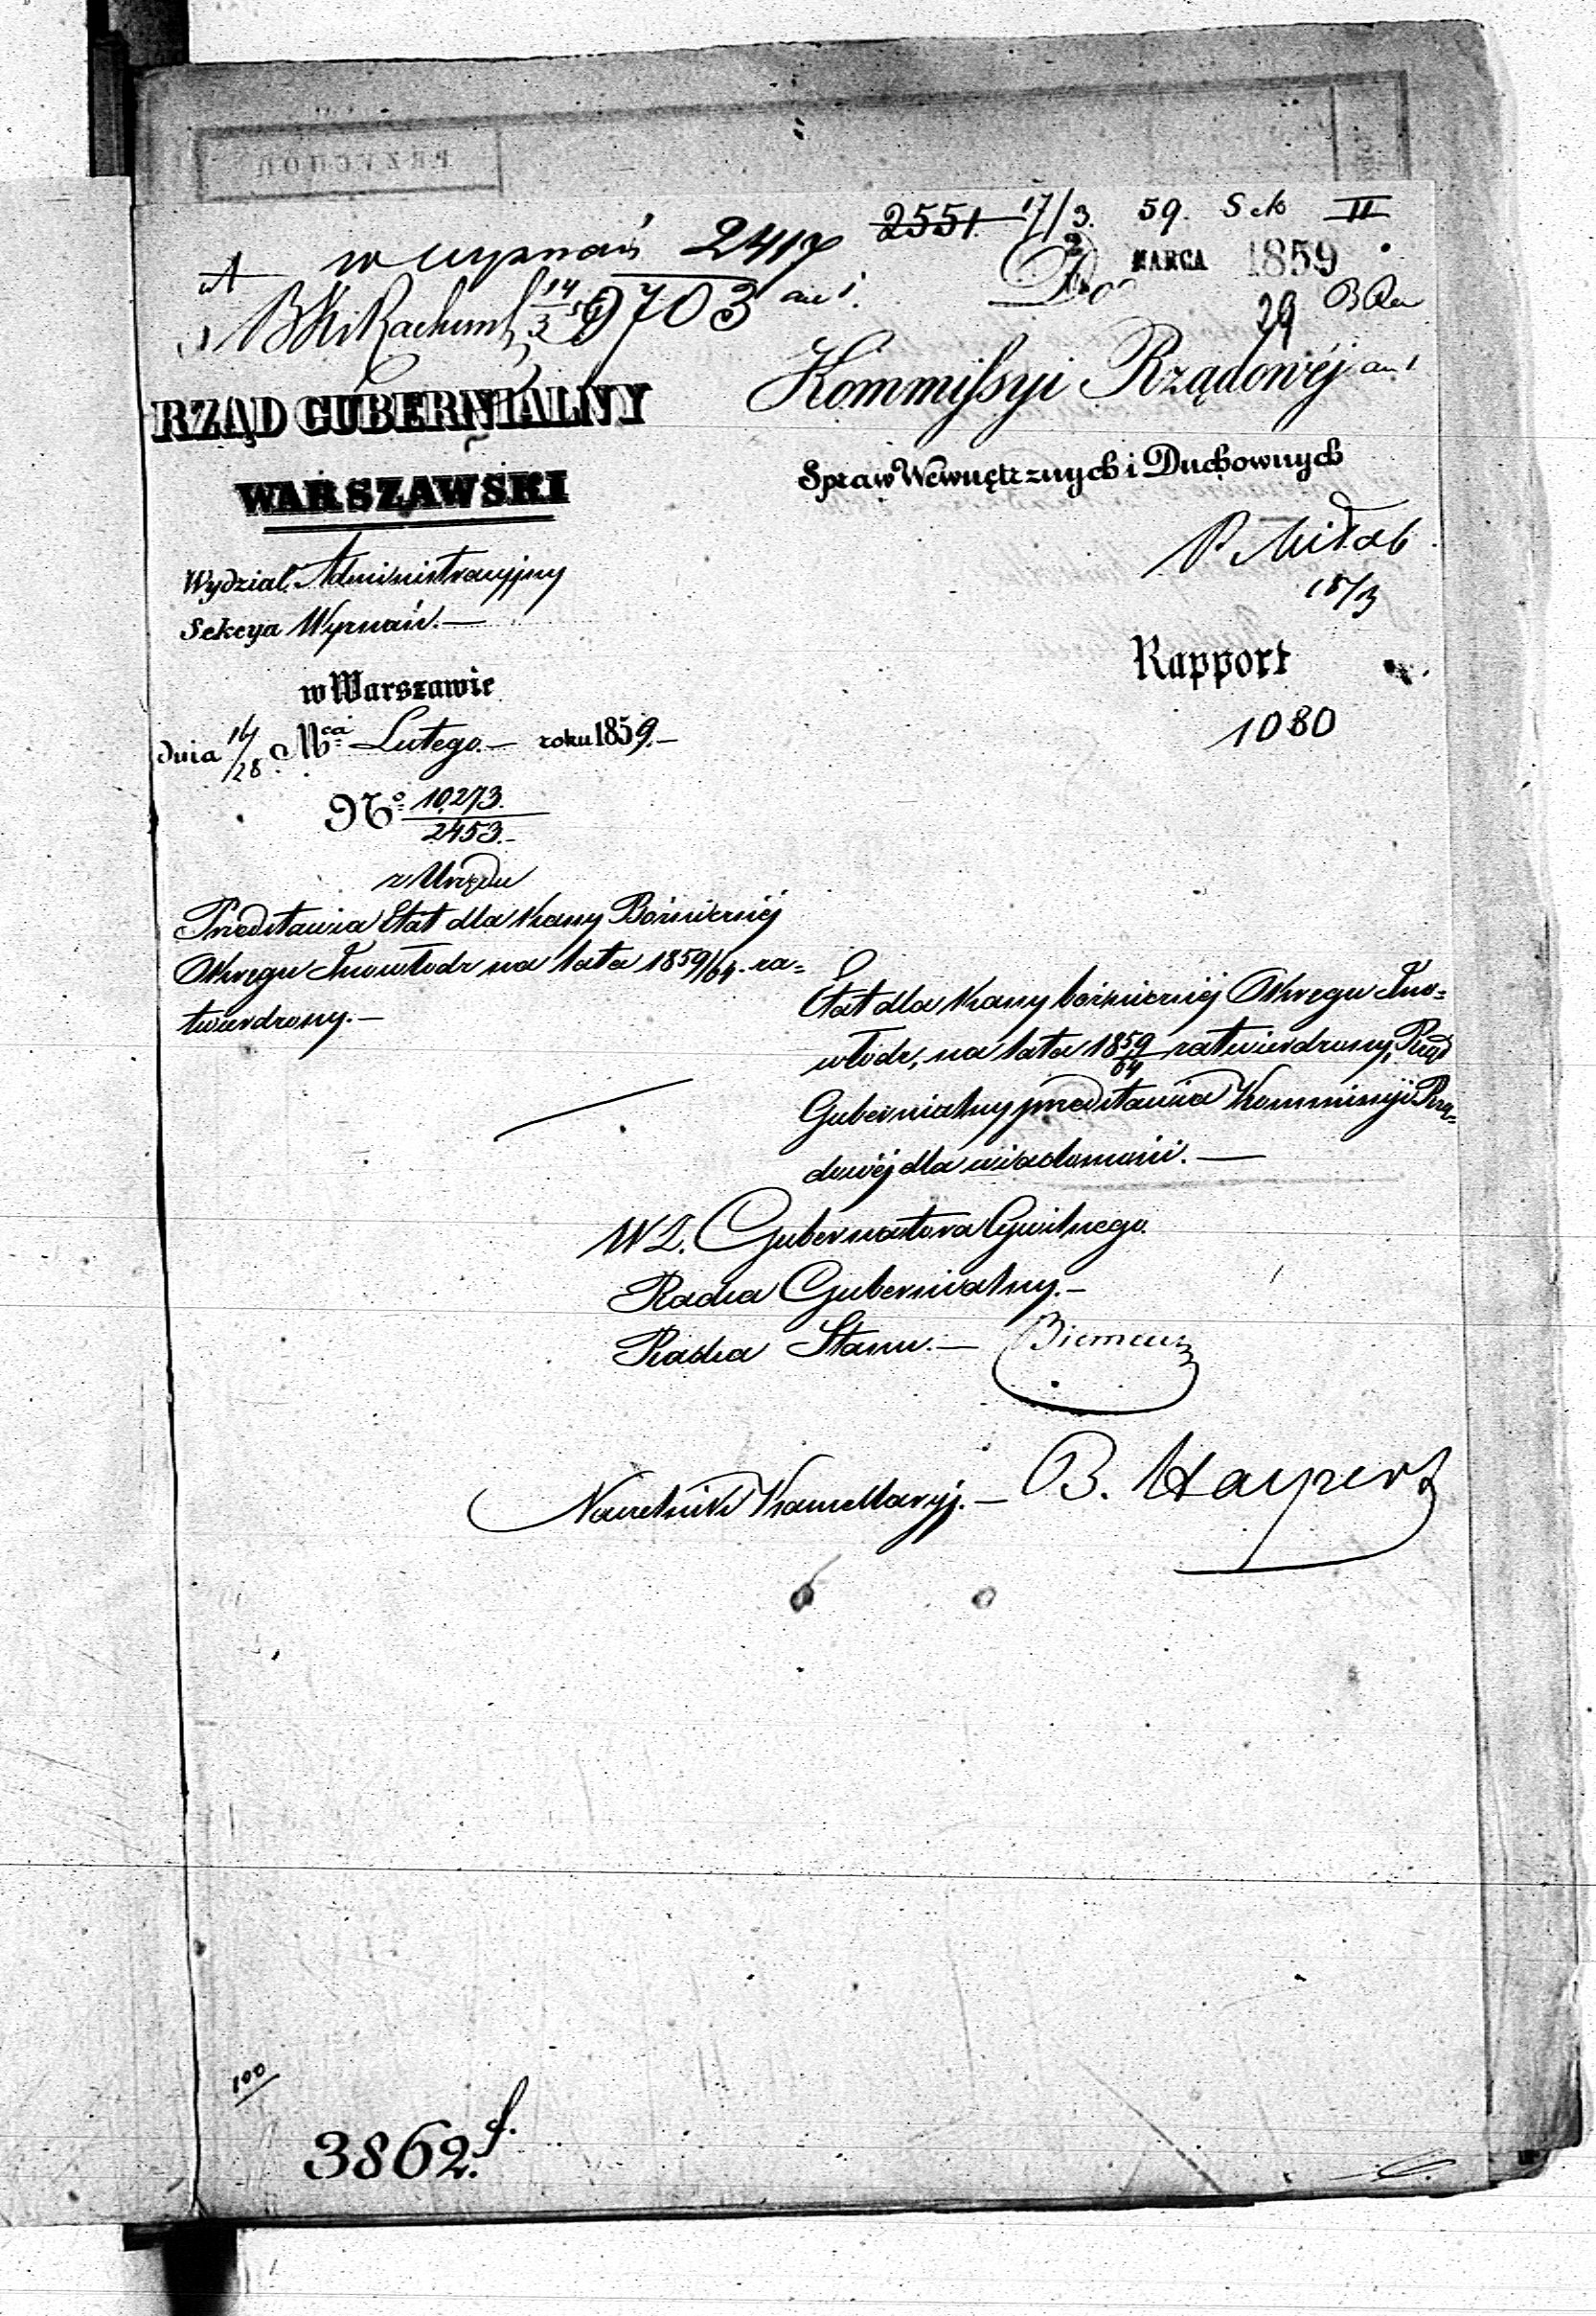 2551. 17/3. 59. Sek II
w wyznań 2417
2 MARCA 1859
Do
9703
29
RZĄD GUBERNIALNY
WARSZAWSKI
Kommissyi Rządowéj
Spraw Wewnętrznych i Duchownych
18/3
Wydział Administracyjny
Sekcya Wyznań.—
w Warszawie
dnia 16/28 Mca Lutego.— roku 1859.—
Rapport
1080
No 10,273.
2453.—
z Urzędu
Przedstawia Etat dla Kassy Bożniczéj
Okręgu Inowłodz na lata 1859/64. za=
twierdzony.—
Etat dla Kassy bożniczéj Okręgu Ino=
włodz, na lata 1859/64 zatwierdzony, Rząd
Gubernialny przedstawia Kommissyi Rzą=
dowéj dla wiadomości.—
W Z. Gubernatora Cywilnego.
Radca Gubernialny.—
Radca Stanu.—
Naczelnik Kancellaryj.— B. Halpert
100
3862.